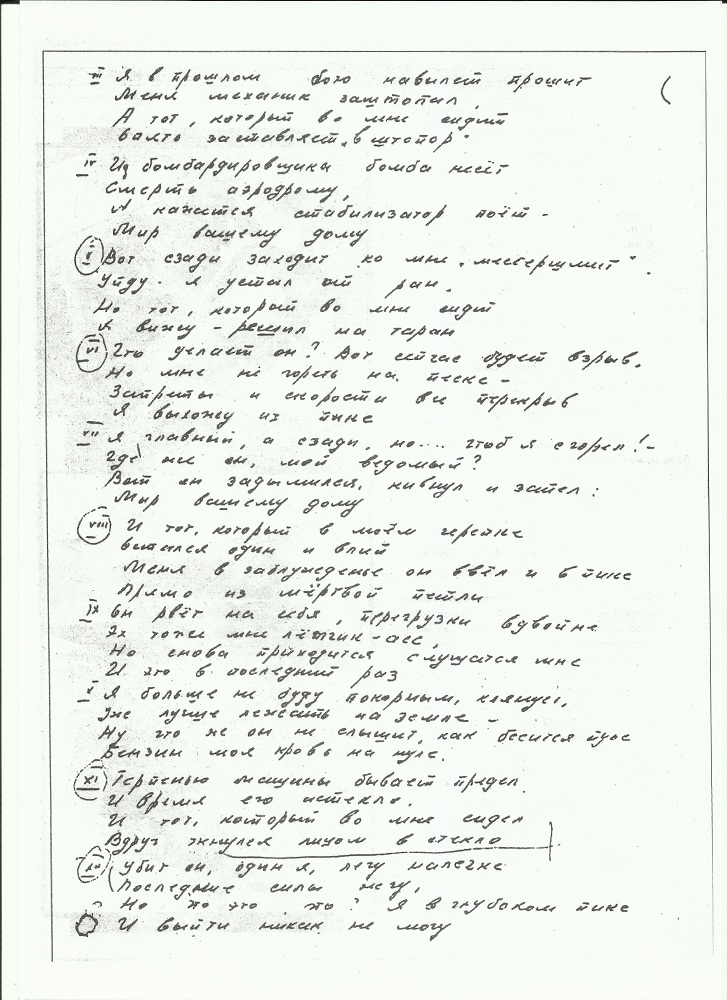 III Я в прошлом бою навылет прошит
Меня механик заштопал,
А тот, который во мне сидит
Опять заставляет "в штопор"
IV Из бомбардировщика бомба несёт
Смерть аэродрому,
А кажется стабилизатор поёт -
Мир вашему дому
V Вот сзади заходит ко мне "мессершмит".
Уйду. Я устал от ран.
Но тот, который во мне сидит
Я вижу - решил на таран
VI Что делает он? Вот сейчас будет взрыв.
Но мне не гореть на песке -
Запреты и скорости все перекрыв
Я выхожу из пике
VII Я главный, а сзади, ну.... чтоб я сгорел! -
Где же он, мой ведомый?
Вот он задымился, кивнул и запел:
Мир вашему дому
VIII И тот, который в моём черепке
Остался один и влип
Меня в заблужденье он ввёл и в пике
Прямо из мёртвой петли
IX Он рвёт на себя, перегрузки вдвойне
Эх тоже мне лётчик-асс,
Но снова приходится слушатся мне
И это в последний раз
X Я больше не буду покорным, клянусь,
Уже лучше лежать на земле -
Ну что же он не слышит, как бесится пульс
Бензин моя кровь на нуле.
XI Терпенью машины бывает предел
И время его истекло.
И тот, который во мне сидел
Вдруг ткнулся лицом в стекло
XII Убит он, один я, лечу налегке
Последние силы жгу,
Но что это что? Я в глубоком пике
И выйти никак не могу